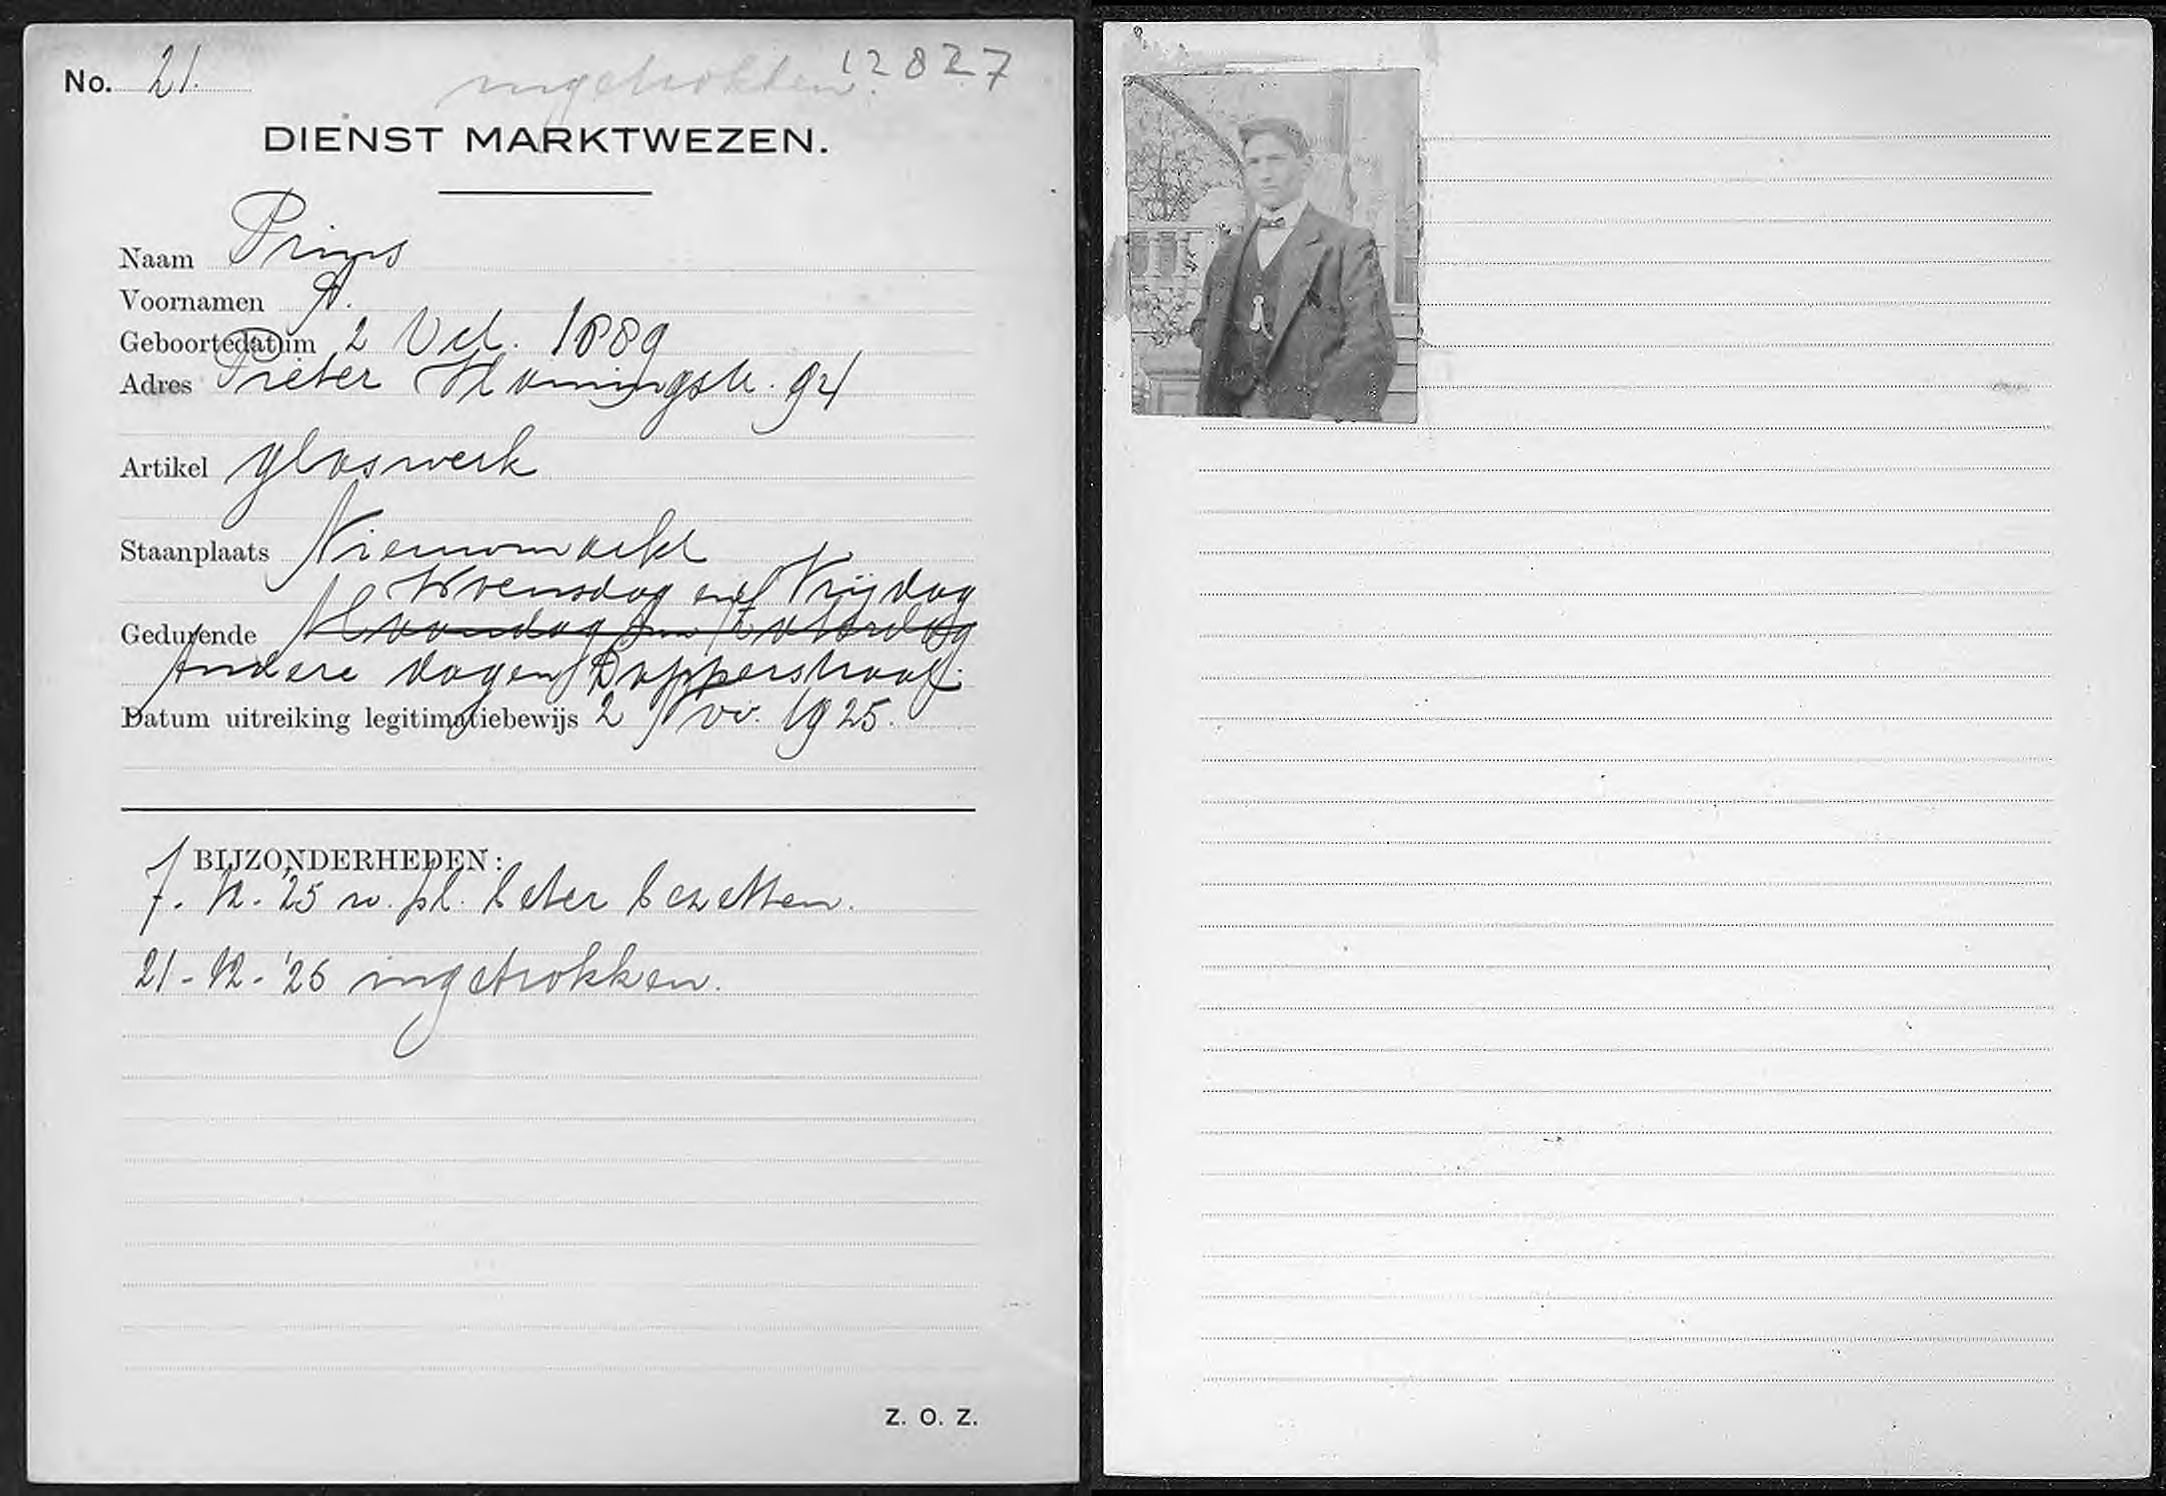 No. 21.
ingetrokken. 12827
DIENST MARKTWEZEN.
Naam Prins
Voornamen A.
Geboortedatum 2 Oct. 1889
Adres Pieter Honingstr. 94
Artikel glaswerk
Staanplaats Nieuwmarkt
Woensdag en Vrijdag
Gedurende Maandag Zaterdag
Andere dagen Dapperstraat.
Datum uitreiking legitimatiebewijs 2 Nov. 1925.
BIJZONDERHEDEN:
7. 12. '25 w. pl. beter bezetten.
21-12-'25 ingetrokken.
Z. O. Z.